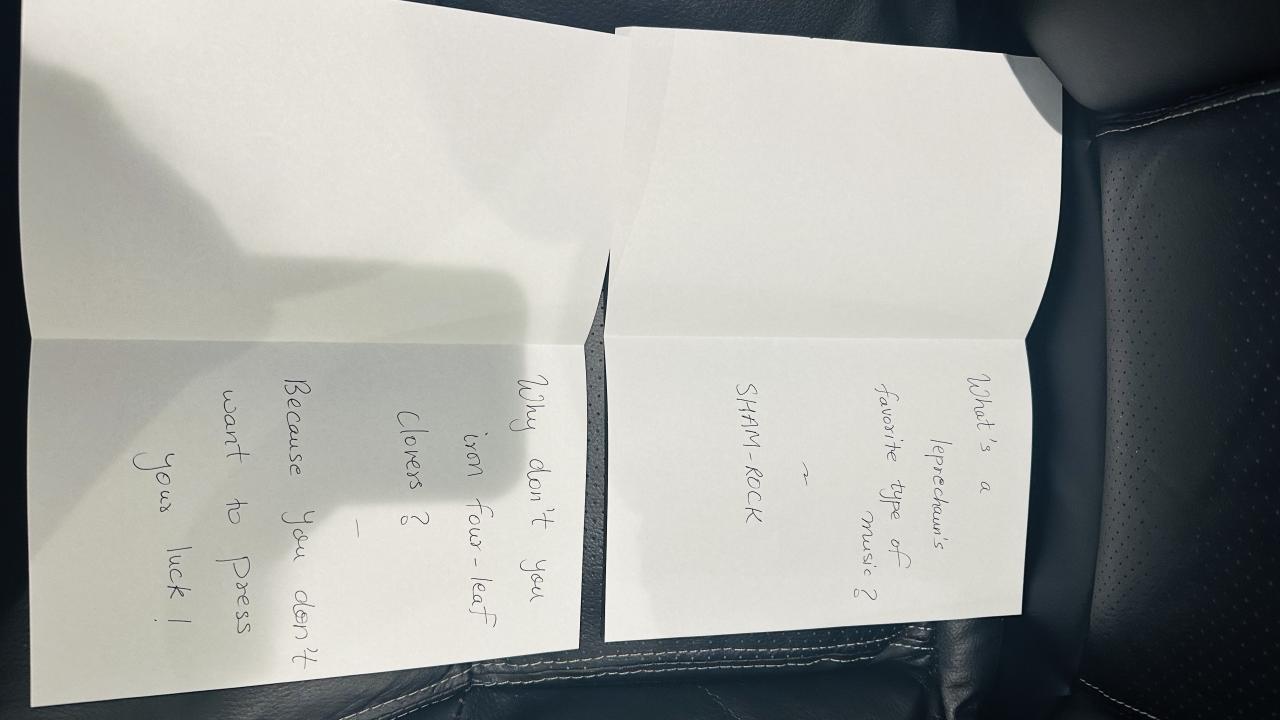 What's a
leprechaun's
favorite type of
music?
~
SHAM-ROCK
Why don't you
iron four-leaf
clovers?
—
Because you don't
want to press
your luck!